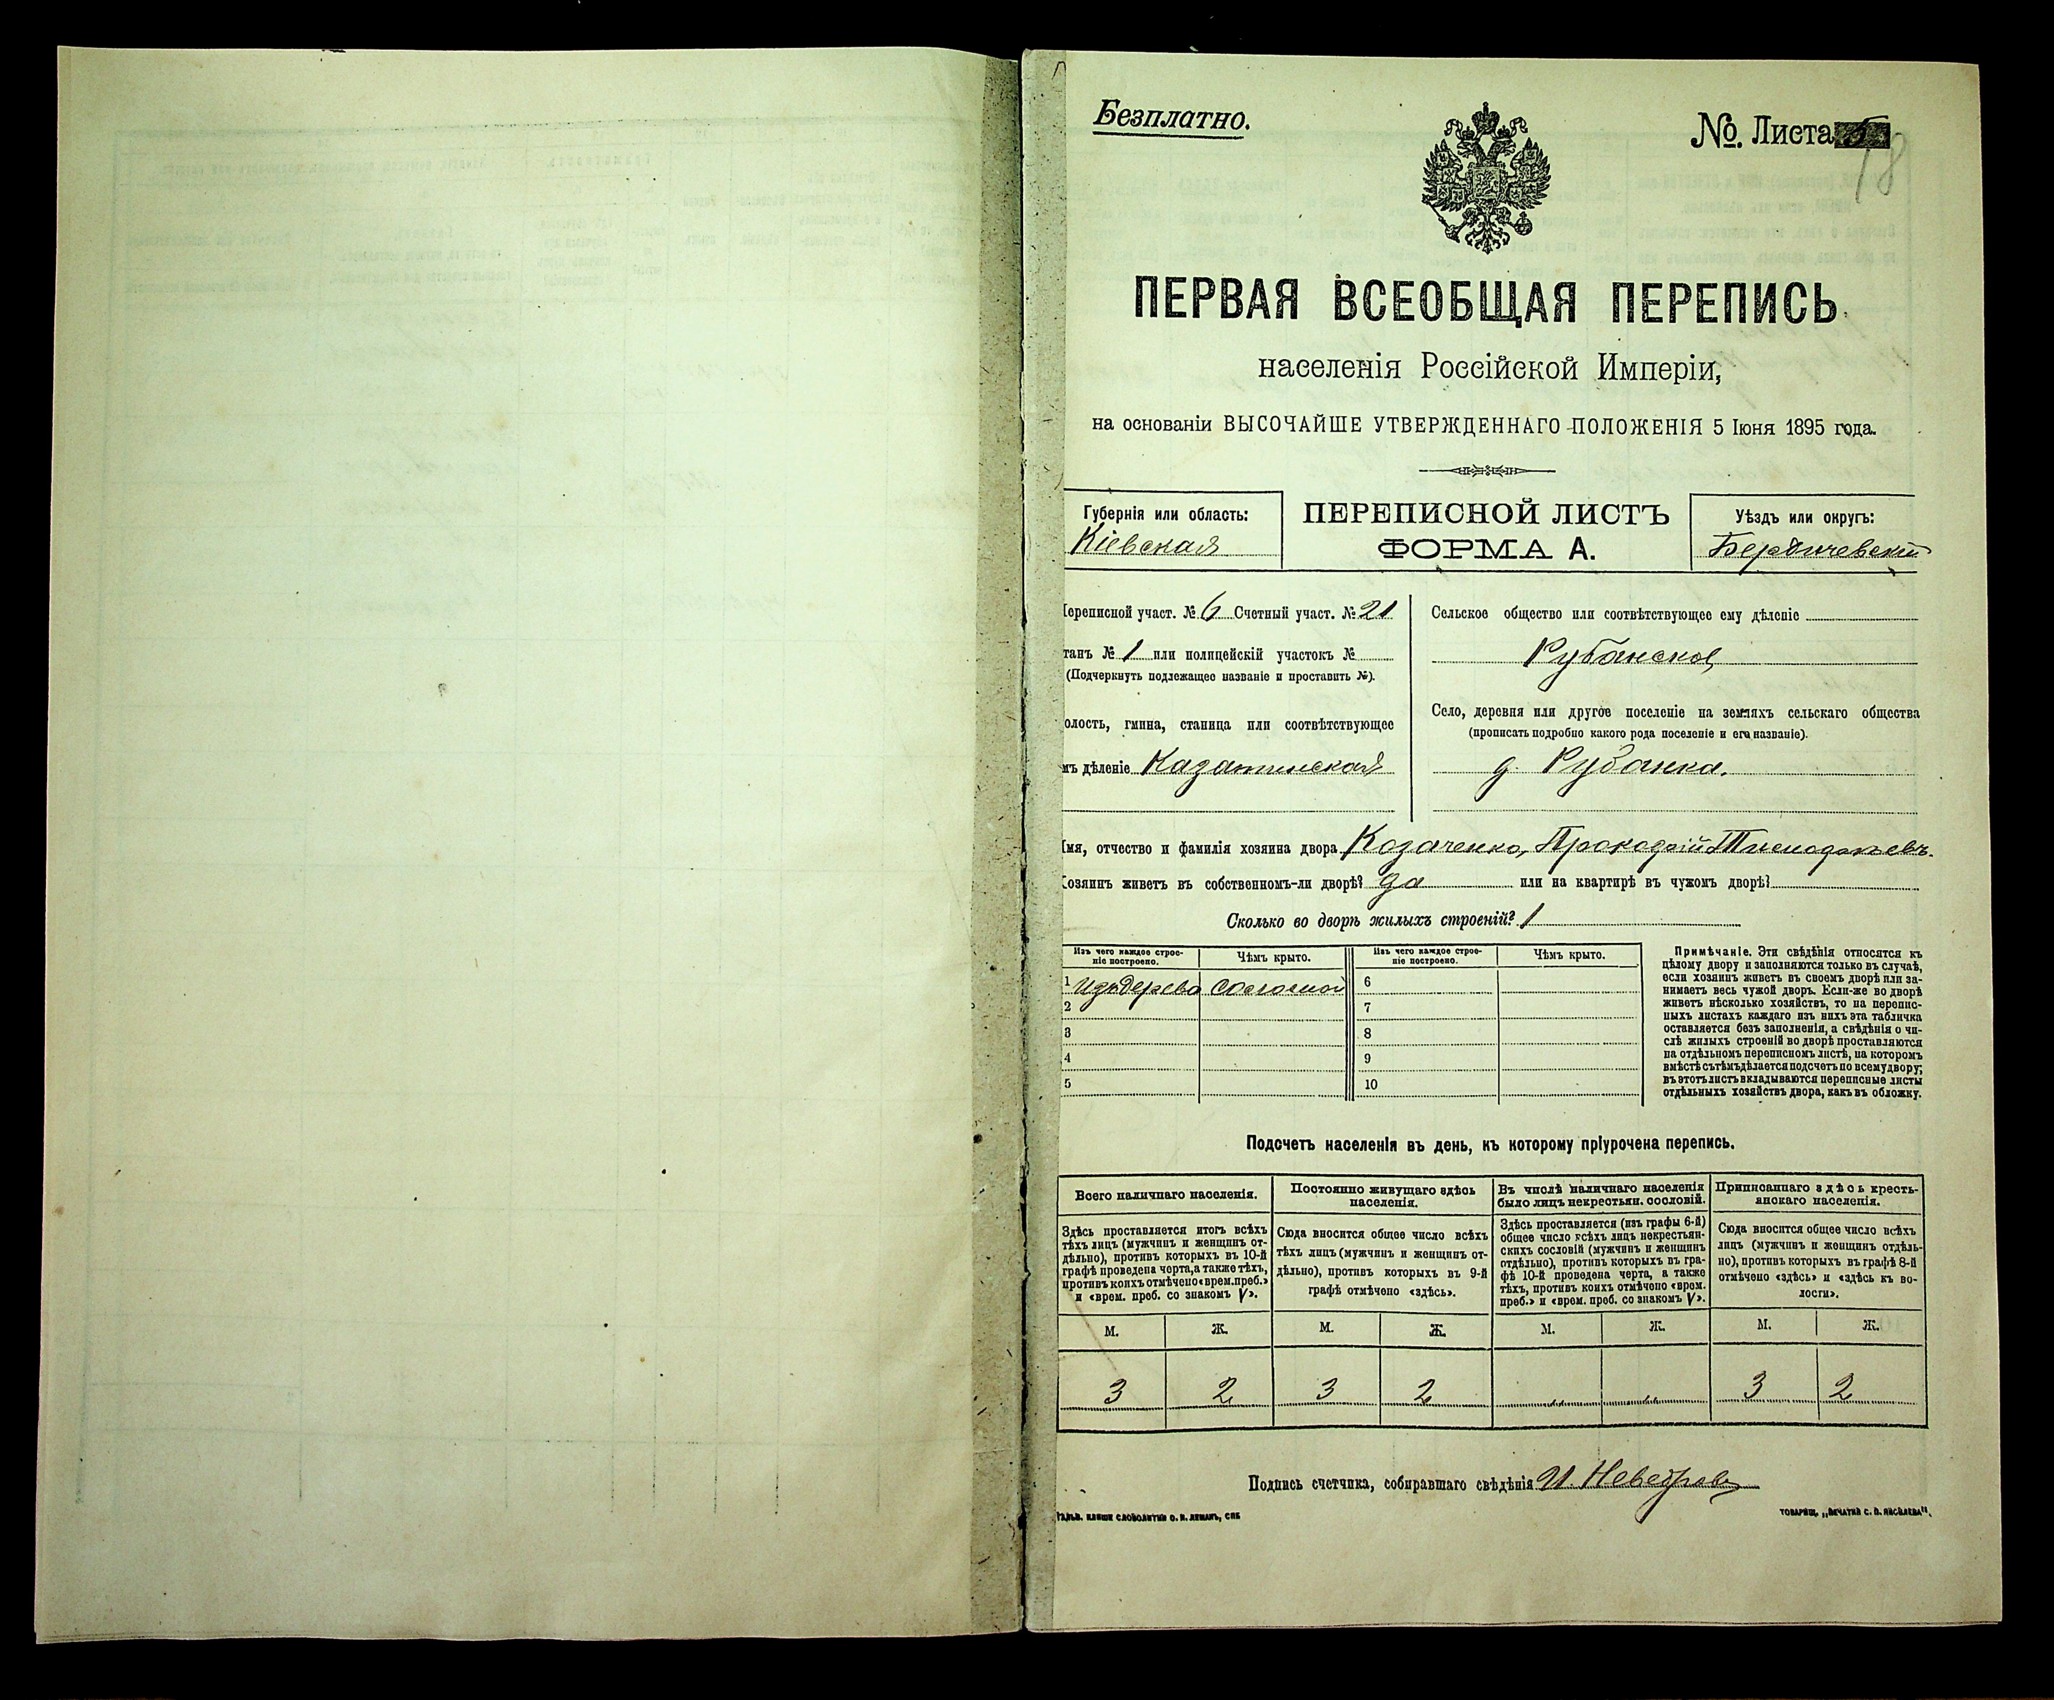 Безплатно.
№. Листа 5
18
ПЕРВАЯ ВСЕОБЩАЯ ПЕРЕПИСЬ
населенія Россійской Имперіи,
на основаніи ВЫСОЧАЙШЕ УТВЕРЖДЕННАГО ПОЛОЖЕНІЯ 5 Іюня 1895 года.
Губернія или область:
Кіевская
ПЕРЕПИСНОЙ ЛИСТЪ
ФОРМА А.
Уѣздъ или округъ:
Бердичевскій
Переписной участ. № 6 Счетный участ. № 21
танъ № 1 или полицейскій участокъ №
(Подчеркнуть подлежащее названіе и проставить №).
олость, гмина, станица или соотвѣтствующее
мъ дѣленіе Казатинская
Сельское общество или соотвѣтствующее ему дѣленіе
Рубанское
Село, деревня или другое поселеніе на земляхъ сельскаго общества
(прописать подробно какого рода поселеніе и его названіе).
д. Рубанка.
Имя, отчество и фамилія хозяина двора Козаченко,
Хозяинъ живетъ въ собственномъ-ли дворѣ? да или на квартирѣ въ чужомъ дворѣ?
Сколько во дворѣ жилыхъ строеній? 1
Изъ чего каждое строе-
ніе построено.
Чѣмъ крыто.
Изъ чего каждое строе-
ніе построено.
Чѣмъ крыто.
1 Изъ дерева соломой 6
2 7
3 8
4 9
5 10
Примѣчаніе. Эти свѣдѣнія относятся къ
цѣлому двору и заполняются только въ случаѣ,
если хозяинъ живетъ въ своемъ дворѣ или за-
нимаетъ весь чужой дворъ. Если-же во дворѣ
живетъ нѣсколько хозяйствъ, то на перепис-
ныхъ листахъ каждаго изъ нихъ эта табличка
оставляется безъ заполненія, а свѣдѣнія о чи-
слѣ жилыхъ строеній во дворѣ проставляются
на отдѣльномъ переписномъ листѣ, на которомъ
вмѣстѣ съ тѣмъ дѣлается подсчетъ по всему двору;
въ этотъ листъ вкладываются переписные листы
отдѣльныхъ хозяйствъ двора, какъ въ обложку.
Подсчетъ населенія въ день, къ которому пріурочена перепись.
Всего наличнаго населенія.
Здѣсь проставляется итогъ всѣхъ
тѣхъ лицъ (мужчинъ и женщинъ от-
дѣльно), противъ которыхъ въ 10-й
графѣ проведена черта, а также тѣхъ,
противъ коихъ отмѣчено «врем. преб.»
и «врем. преб. со знакомъ V».
Постоянно живущаго здѣсь
населенія.
Сюда вносится общее число всѣхъ
тѣхъ лицъ (мужчинъ и женщинъ от-
дѣльно), противъ которыхъ въ 9-й
графѣ отмѣчено «здѣсь».
Въ числѣ наличнаго населенія
было лицъ некрестьян. сословій.
Здѣсь проставляется (изъ графы 6-й)
общее число всѣхъ лицъ некрестьян-
скихъ сословій (мужчинъ и женщинъ
отдѣльно), противъ которыхъ въ гра-
фѣ 10-й проведена черта, а также
тѣхъ, противъ коихъ отмѣчено «врем.
преб.» и «врем. преб. со знакомъ V».
Приписаннаго здѣсь кресть-
янскаго населенія.
Сюда вносится общее число всѣхъ
лицъ (мужчинъ и женщинъ отдѣль-
но), противъ которыхъ въ графѣ 8-й
отмѣчено «здѣсь» и «здѣсь къ во-
лости».
М. Ж. М. Ж. М. Ж. М. Ж.
3 2 3 2 „ „ 3 2
Подпись счетчика, собиравшаго свѣдѣнія И.
Гальв. клише словолитни О. И. Леманъ, СПБ
Товарищ. „Печатня С. П. Яковлева".